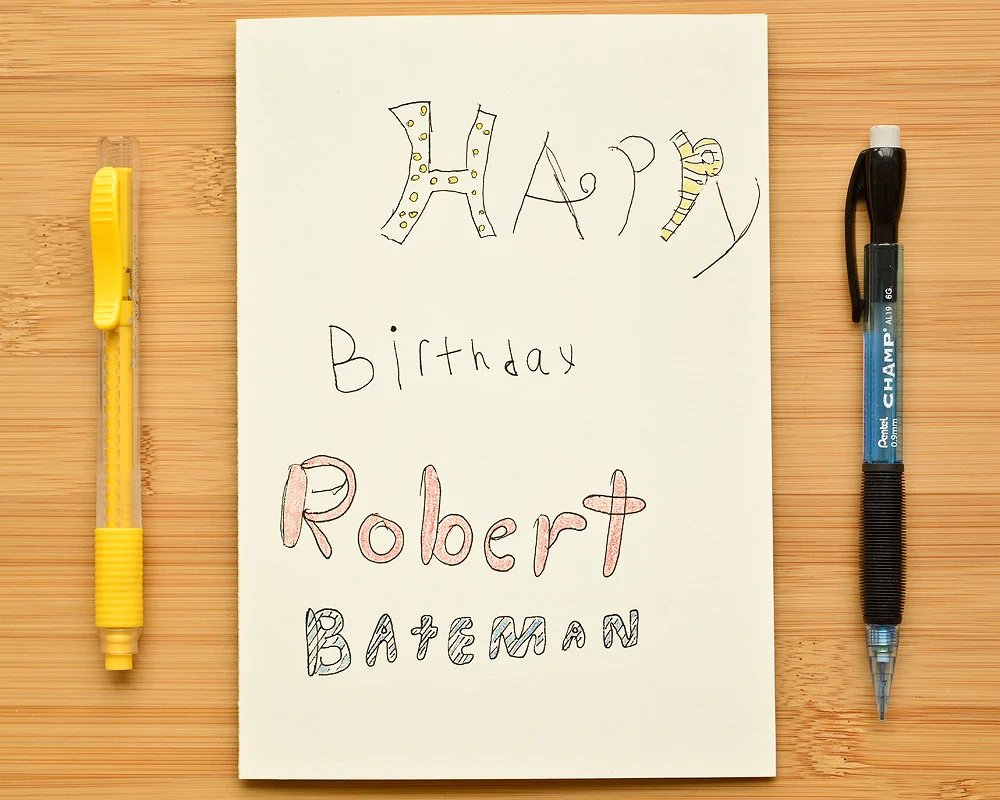 HAppy
Birthday
Robert
BAtEMAN
Pentel CHAMP® AL19 6G
0.9mm